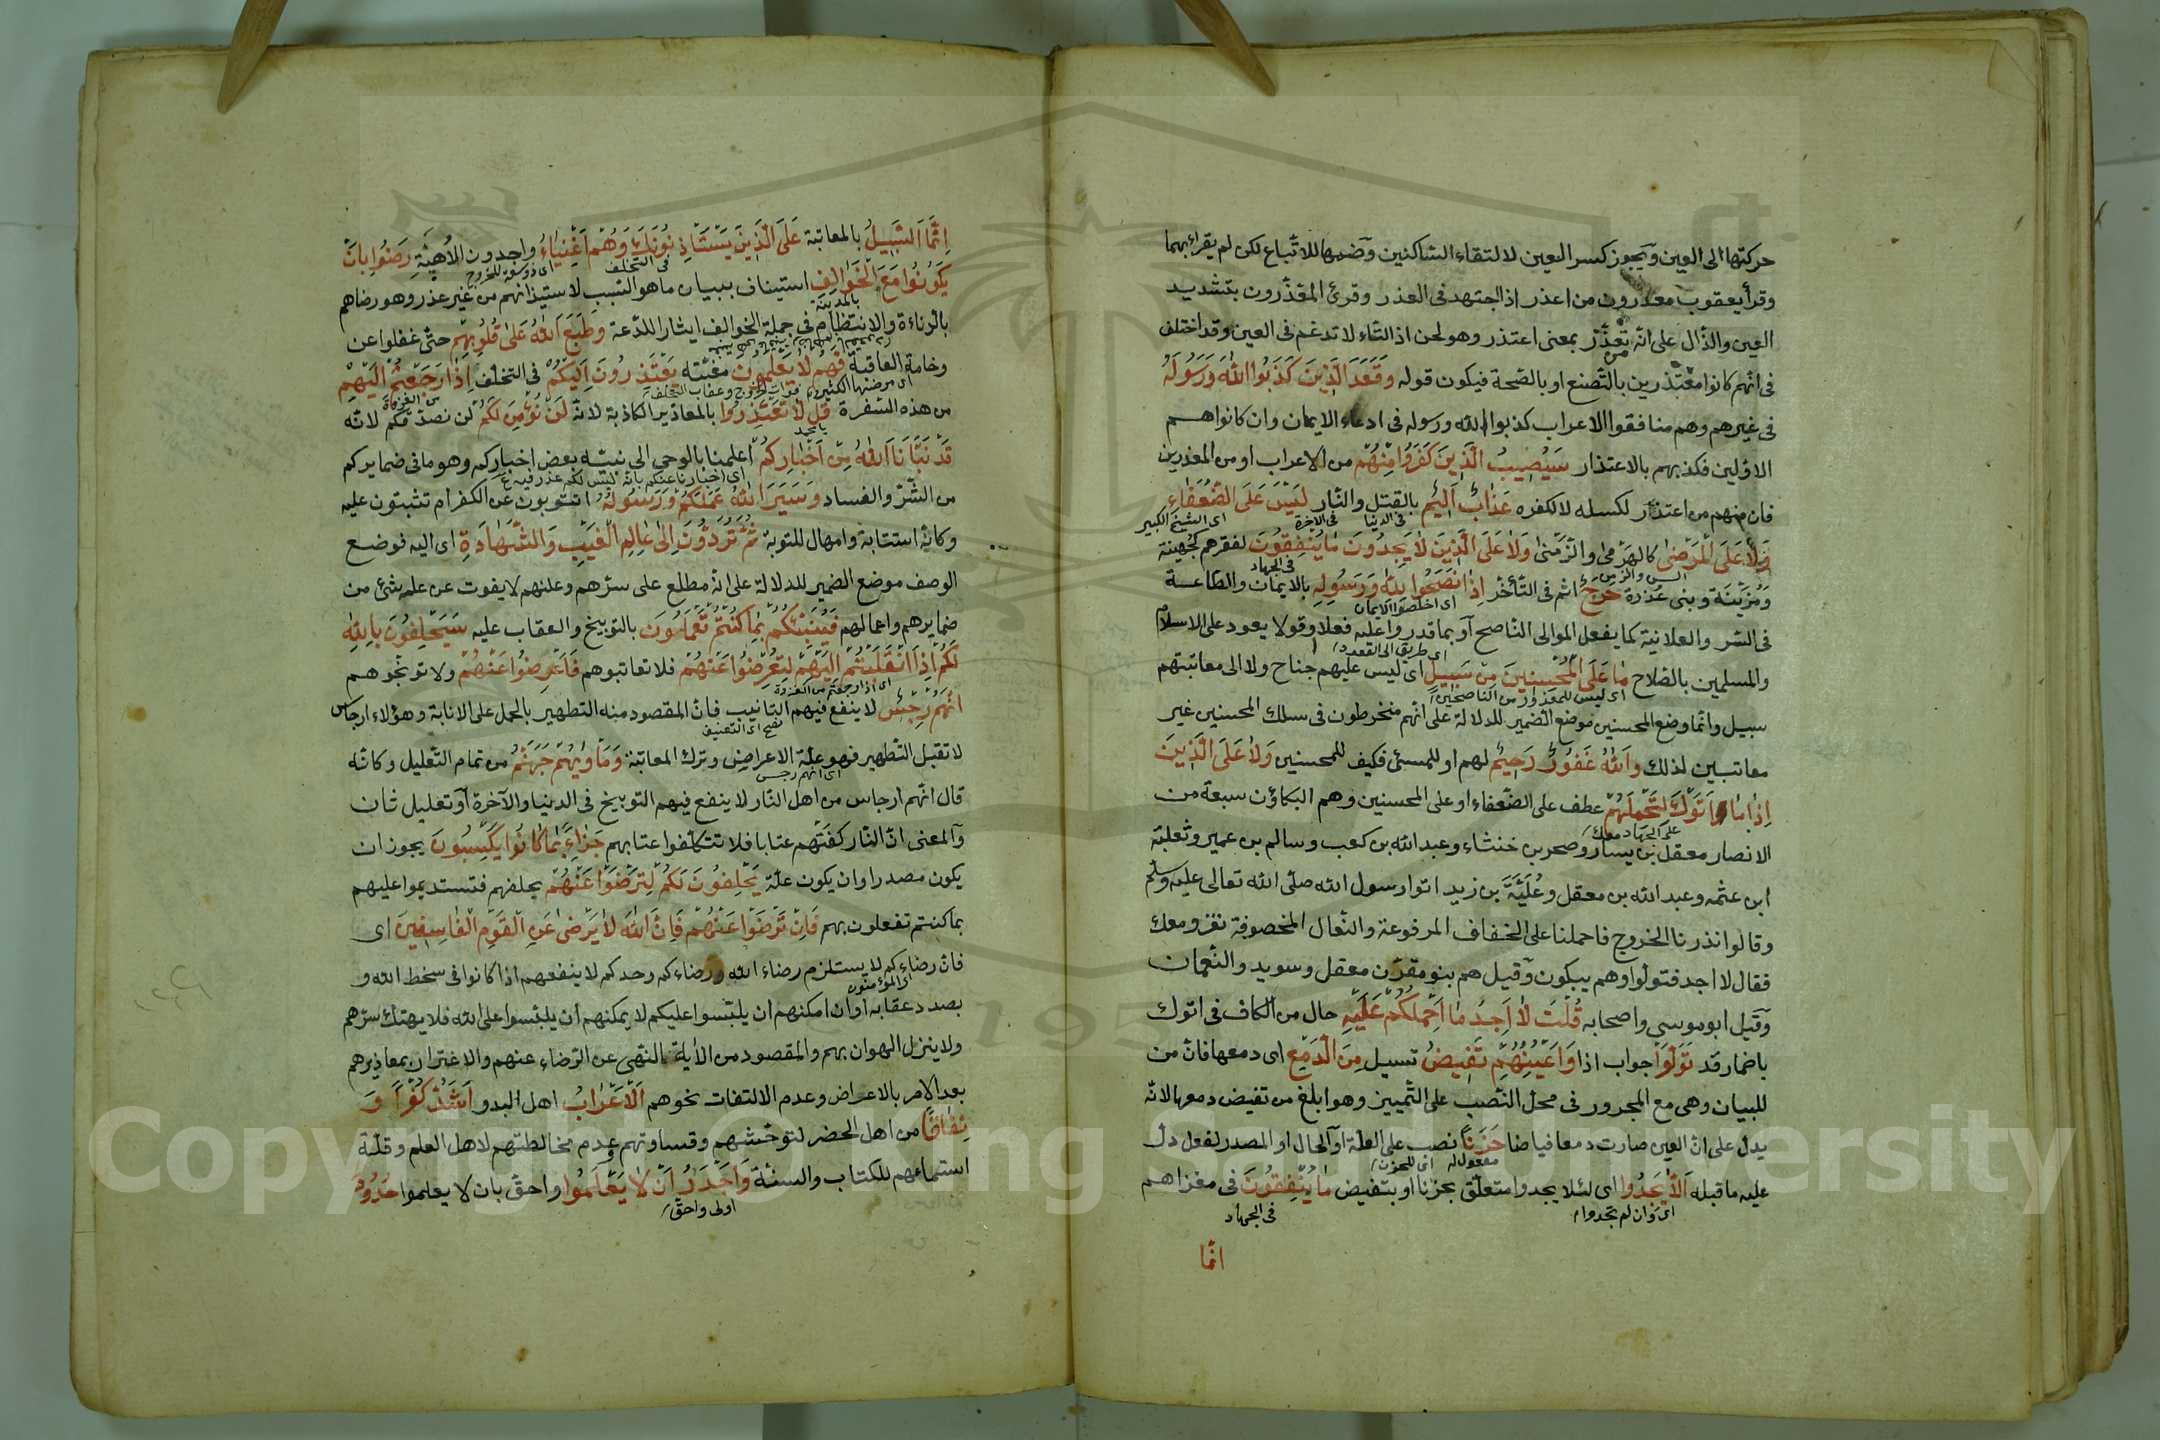 حركتها الى العين ويجوز كسر العين لالتقاء الساكنين وضمها للاتباع لكن لم يقراء بهما
وقرأ يعقوب معذرون من اعذر اذا اجتهد فى العذر وقرئ المعّذّرون بتشديد
العين والذال على انه تعذر بمعنى اعتذر وهو لحن اذ التاء لا تدغم فى العين وقد اختلف
فى انهم كانوا معتذرين بالتصنع او بالصحة فيكون قوله وَقَعَدَ الَّذِينَ كَذَبُوا اللهَ وَرَسُولَهُ
فى غيرهم وهم منافقوا الاعراب كذبوا الله ورسوله فى ادعاء الايمان وان كانوا هم
الاولين فكذبهم بالاعتذار سَيُصِيبُ الَّذِينَ كَفَرُوا مِنْهُمْ من الاعراب او من المعذرين
فان منهم من اعتذر لكسله لا لكفره عَذَابٌ اَلِيمٌ بالقتل والنار لَيْسَ عَلَى الضُّعَفَاءِ
فى الدنيا فى الآخرة اى الشيخ الكبير
وَلَا عَلَى الْمَرْضَى كالهرمى والزمنى وَلَا عَلَى الَّذِينَ لَا يَجِدُونَ مَا يُنْفِقُونَ لفقرهم كجهينة
فى الجهاد
ومزينة وبنى عذرة حَرَجٌ اثم فى التأخر اِذَا نَصَحُوا لِلّٰهِ وَرَسُولِهِ بالايمان والطاعة
اى اخلصوا الايمان
فى السر والعلانية كما يفعل الموالى الناصح او بما قدروا عليه فعلا وقولا يعود على الاسلام
اى طريق الى القعود
والمسلمين بالصلاح مَا عَلَى الْمُحْسِنِينَ مِنْ سَبِيلٍ اى ليس عليهم جناح ولا الى معاتبتهم
سبيل وانما وضع المحسنين موضع الضمير للدلالة على انهم منخرطون فى سلك المحسنين غير
معاتبين لذلك وَاللهُ غَفُورٌ رَحِيمٌ لهم او للمسئ فكيف للمحسنين وَلَا عَلَى الَّذِينَ
اِذَا مَا اَتَوْكَ لِتَحْمِلَهُمْ عطف على الضعفاء او على المحسنين وهم البكاؤن سبعة من
على الجهاد معك
الانصار معقل بن يسار وصحر بن خنشاء وعبد الله بن كعب وسالم بن عمير وثعلبة
ابن عثمه وعبد الله بن معقل وعُلَيَّة بن زيد اتوا رسول الله صلى الله تعالى عليه وسلم
وقالوا نذرنا الخروج فاحملنا على الخفاف المرفوعة والنعال المخصوفة نغزو معك
فقال لا اجد فتولوا وهم يبكون وقيل هم بنو مقرن معقل وسويد والنعمان
وقيل ابو موسى واصحابه قُلْتَ لَا اَجِدُ مَا اَحْمِلُكُمْ عَلَيْهِ حال من الكاف فى اتوك
باضمار قد تَوَلَّوْا جواب اذا وَاَعْيُنُهُمْ تَفِيضُ تسيل مِنَ الدَّمْعِ اى دمعها فان من
للبيان وهى مع المجرور فى محل النصب على التمييز وهو ابلغ من تفيض دمعها لانه
يدل على ان العين صارت دمعا فياضا حَزَنًا نصب على العلة او الحال او المصدر لفعل دل
مفعول له
عليه ما قبله اَلَّا يَجِدُوا اى لئلا يجدوا متعلق بحزنا او بتفيض مَا يُنْفِقُونَ فى مغزاهم
فى الجهاد
انما
اِنَّمَا السَّبِيلُ بالمعاتبة عَلَى الَّذِينَ يَسْتَأْذِنُونَكَ وَهُمْ اَغْنِيَاءُ واجدون الاهبة رَضُوا بِاَنْ
فى التخلف
يَكُونُوا مَعَ الْخَوَالِفِ استيناف ببيان ما هو السبب لاستيذانهم من غير عذر وهو رضاهم
بالمدينة
بالدناءة والانتظام فى جملة الخوالف ايثارا للدعة وَطَبَعَ اللهُ عَلَى قُلُوبِهِمْ حتى غفلوا عن
وخامة العاقبة فَهُمْ لَا يَعْلَمُونَ مغبته يَعْتَذِرُونَ اِلَيْكُمْ فى التخلف اِذَا رَجَعْتُمْ اِلَيْهِمْ
من الغزوة
من هذه السفرة قُلْ لَا تَعْتَذِرُوا بالمعاذير الكاذبة لانه لَنْ نُؤْمِنَ لَكُمْ لن نصدقكم لانه
يا محمد
قَدْ نَبَّأَنَا اللهُ مِنْ اَخْبَارِكُمْ اعلمنا بالوحى الى نبيه بعض اخباركم وهو ما فى ضمايركم
من الشر والفساد وَسَيَرَى اللهُ عَمَلَكُمْ وَرَسُولُهُ اتتوبون عن الكفر ام تثبتون عليه
وكانه استتابة وامهال للتوبة ثُمَّ تُرَدُّونَ اِلَى عَالِمِ الْغَيْبِ وَالشَّهَادَةِ اى اليه فوضع
الوصف موضع الضمير للدلالة على انه مطلع على سرهم وعلنهم لا يفوت عن علمه شئ من
ضمايرهم واعمالهم فَيُنَبِّئُكُمْ بِمَا كُنْتُمْ تَعْمَلُونَ بالتوبيخ والعقاب عليه سَيَحْلِفُونَ بِاللّٰهِ
لَكُمْ اِذَا انْقَلَبْتُمْ اِلَيْهِمْ لِتُعْرِضُوا عَنْهُمْ فلا تعاتبوهم فَاَعْرِضُوا عَنْهُمْ ولا توبخوهم
اى اذا رجعتم من الغزوة
اِنَّهُمْ رِجْسٌ لا ينفع فيهم التانيب فان المقصود منه التطهير بالحمل على الانابة وهؤلاء ارجاس
لا تقبل التطهير فهو علة الاعراض وترك المعاتبة وَمَأْوٰيهُمْ جَهَنَّمُ من تمام التعليل وكانه
اى انهم رجس
قال انهم ارجاس من اهل النار لا ينفع فيهم التوبيخ فى الدنيا والآخرة او تعليل ثان
والمعنى ان النار كفتهم عتابا فلا تتكلفوا عتابهم جَزَاءً بِمَا كَانُوا يَكْسِبُونَ يجوز ان
يكون مصدرا وان يكون علة يَحْلِفُونَ لَكُمْ لِتَرْضَوْا عَنْهُمْ بحلفهم فتستديموا عليهم
بما كنتم تفعلون بهم فَاِنْ تَرْضَوْا عَنْهُمْ فَاِنَّ اللهَ لَا يَرْضَى عَنِ الْقَوْمِ الْفَاسِقِينَ اى
فان رضاءكم لا يستلزم رضاء الله ورضاءكم وحدكم لا ينفعهم اذا كانوا فى سخط الله و
اى المؤمنون
بصدد عقابه او ان امكنهم ان يلبسوا عليكم لا يمكنهم ان يلبسوا على الله فلا يهتك سرهم
ولا ينزل الهوان بهم والمقصود من الآية النهى عن الرضاء عنهم والاغترار بمعاذيرهم
بعد الامر بالاعراض وعدم الالتفات نحوهم اَلْاَعْرَابُ اهل البدو اَشَدُّ كُفْرًا وَ
نِفَاقًا من اهل الحضر لتوحشهم وقساوتهم وعدم مخالطتهم لاهل العلم وقلة
استماعهم للكتاب والسنة وَاَجْدَرُ اَنْ لَا يَعْلَمُوا واحق بان لا يعلموا حُدُودَ
اولى واحق
Copyright © King Saud University